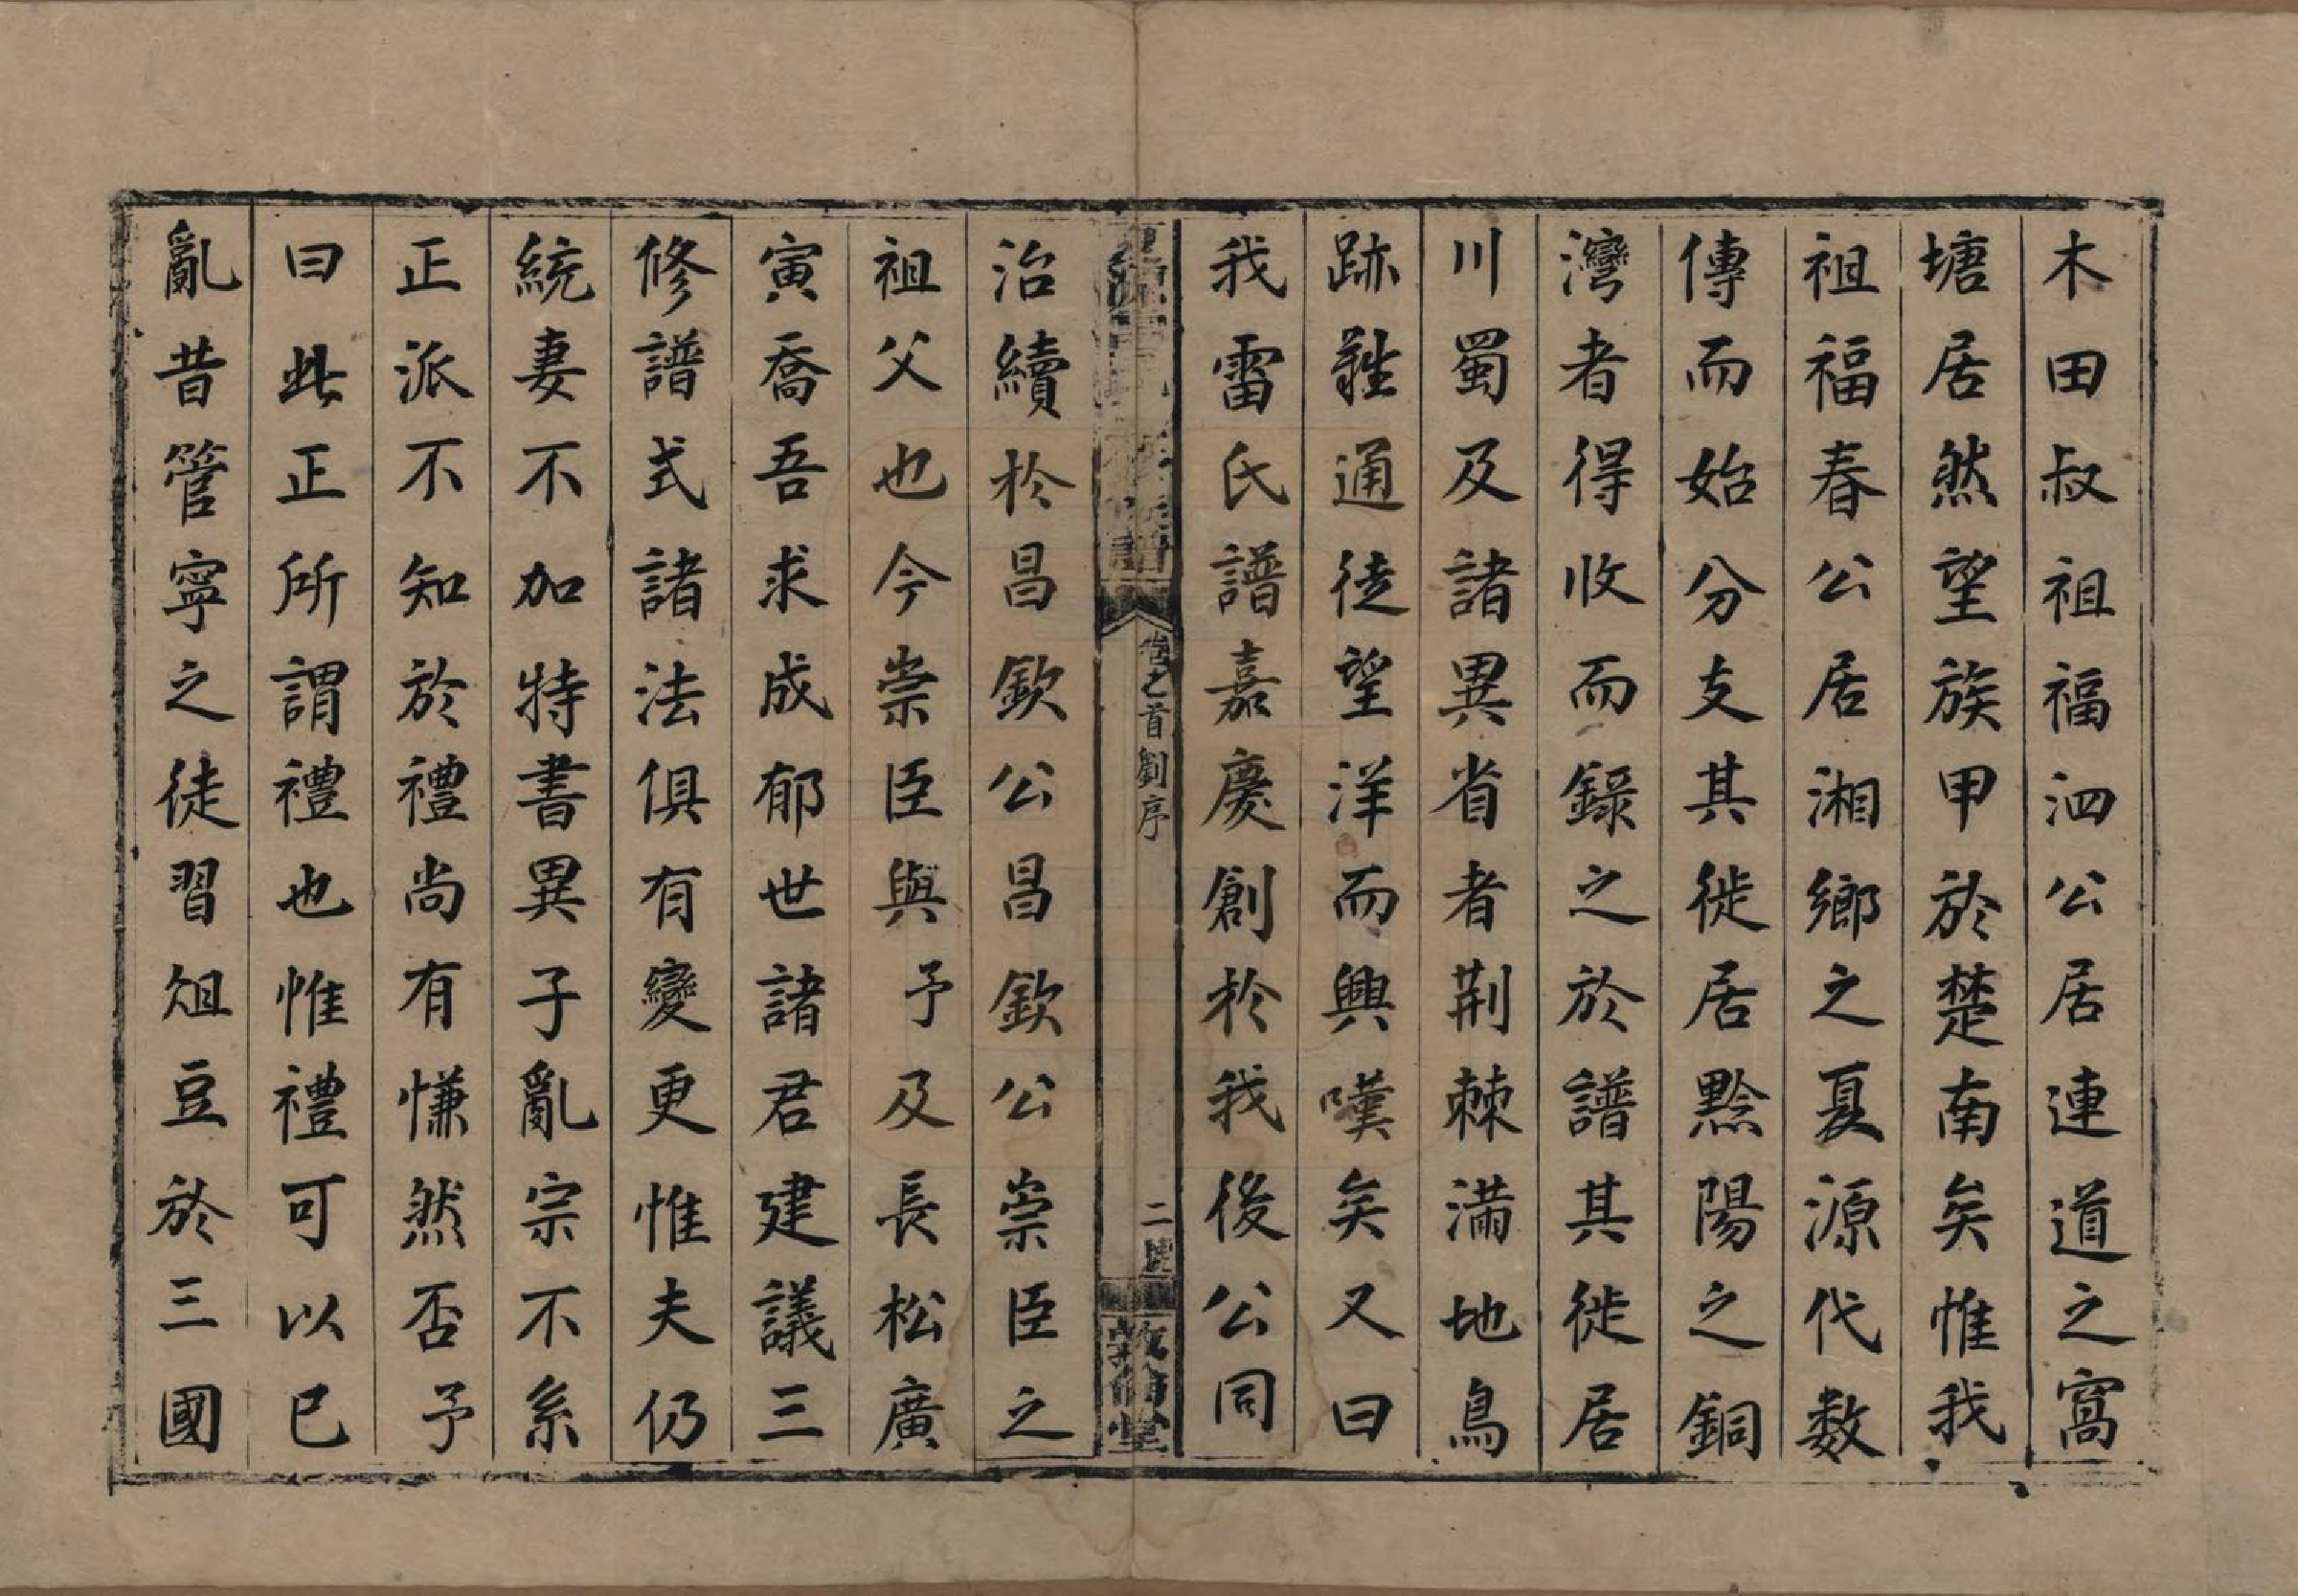 木田叔祖福泗公居連道之窩
塘居然望族甲於楚南矣惟我
祖福春公居湘鄉之夏源代数
傳而始分支其徙居黔陽之銅
灣者得收而錄之於譜其徙居
川蜀及諸異省者荆棘滿地鳥
跡難通徒望洋而興嘆矣又曰
我雷氏譜嘉慶創於我後公同
卷之首劉序
二
敦倫堂
治續於昌欽公昌欽公崇臣之
祖父也今崇臣與予及長松廣
寅喬吾求成郁世諸君建議三
修譜式諸法俱有變更惟夫仍
統妻不加特書異子亂宗不系
正派不知於禮尚有慊然否予
曰此正所謂禮也惟禮可以已
亂昔管寧之徒習俎豆於三國